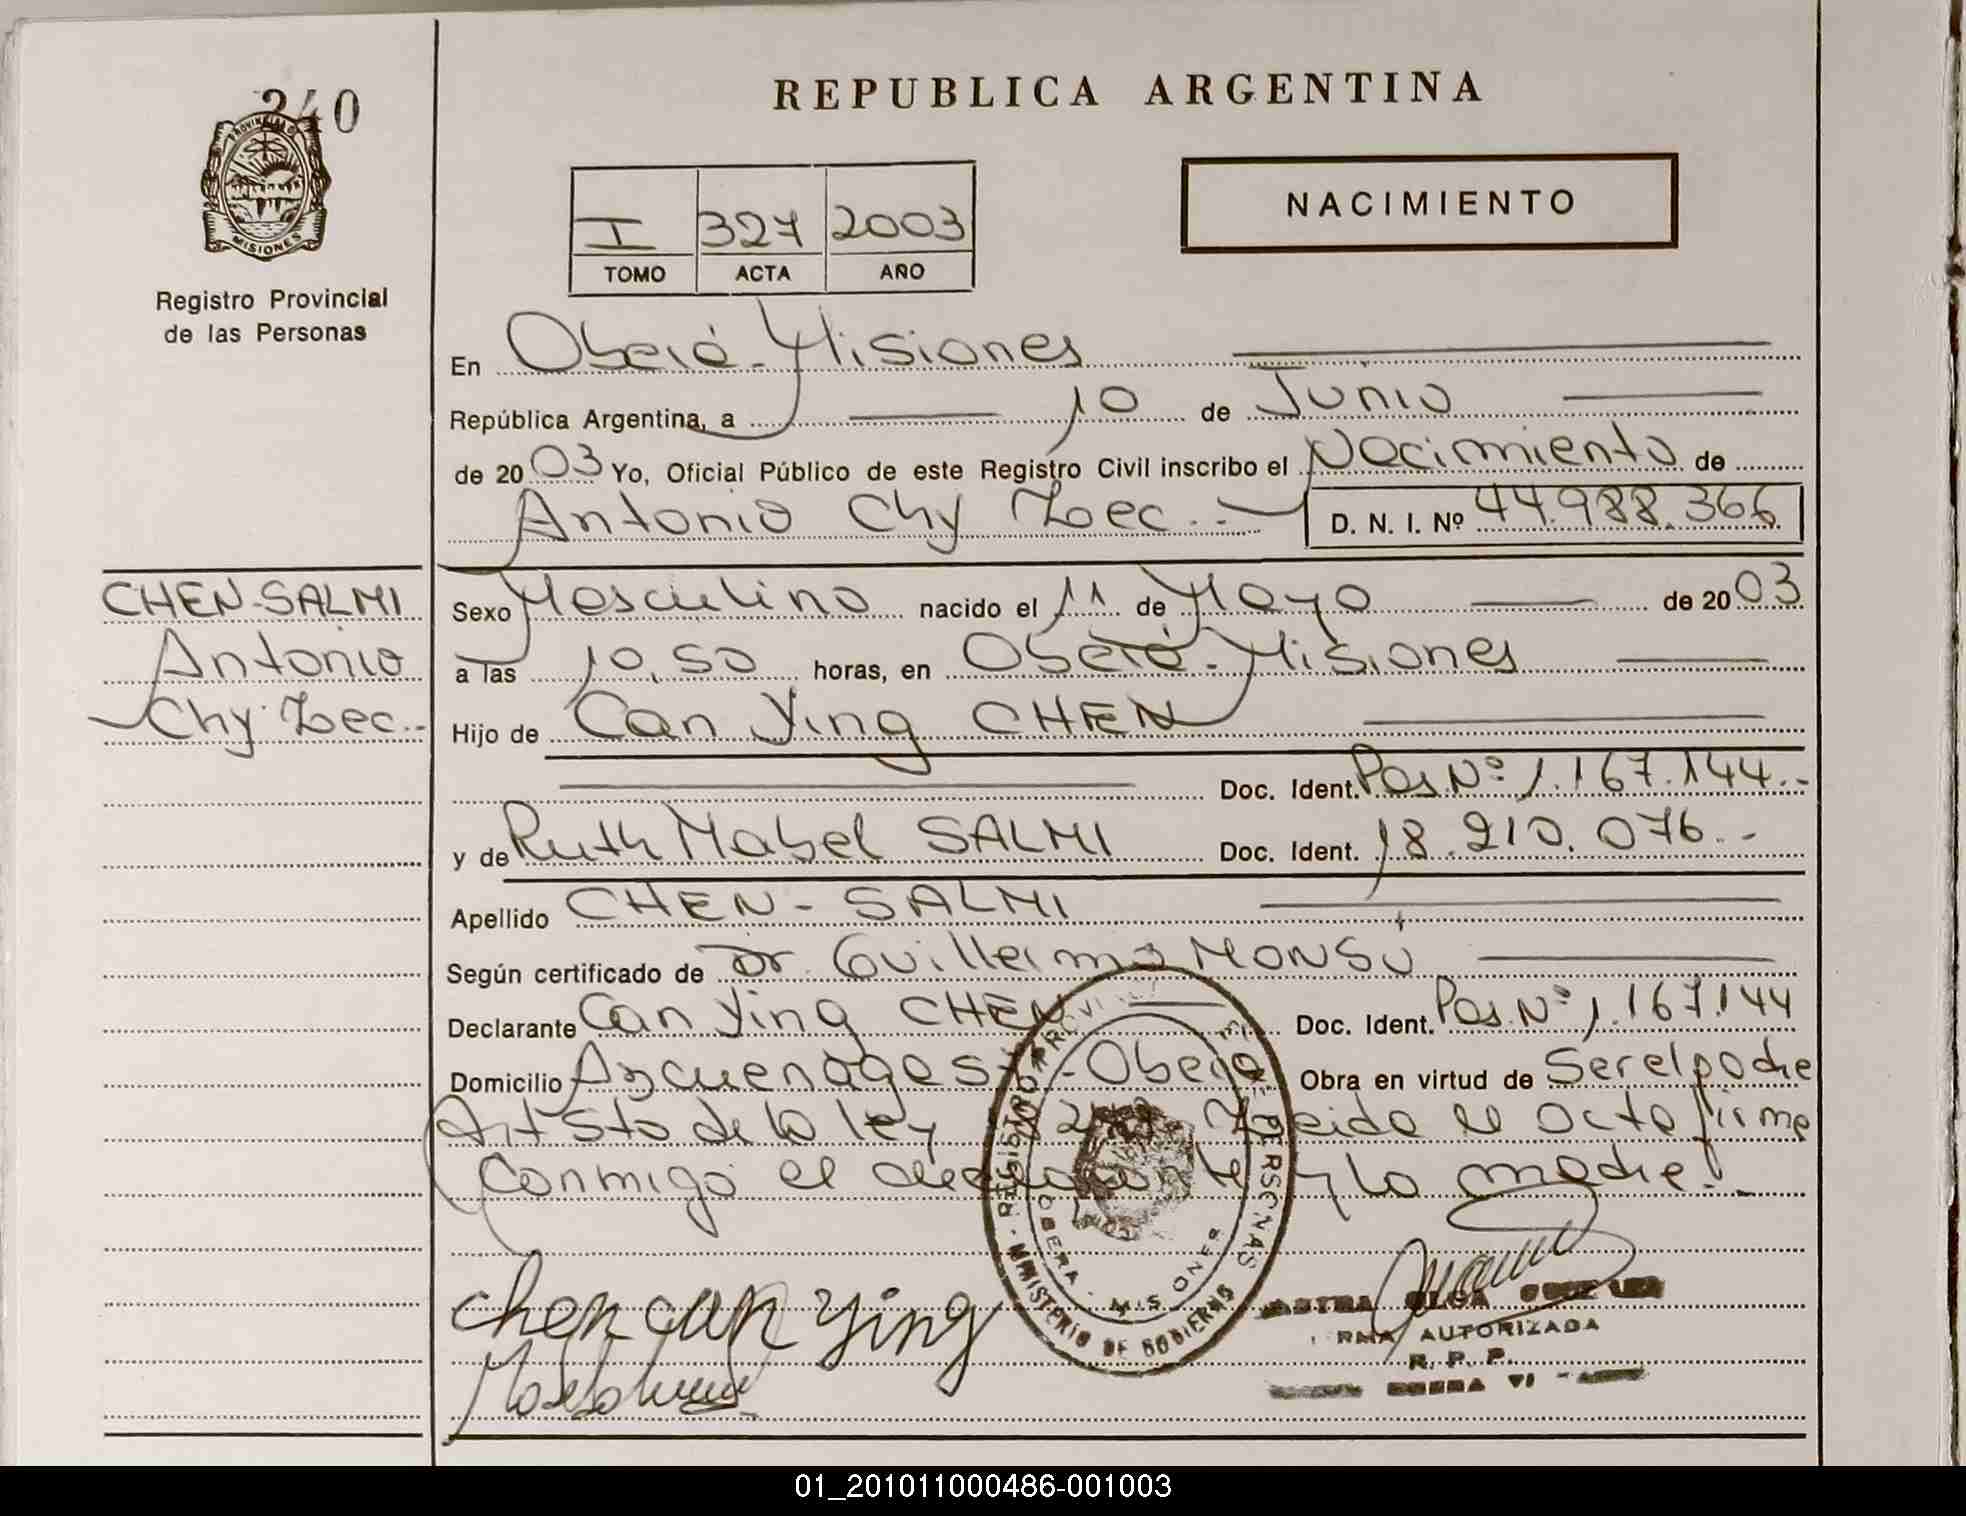 240
REPUBLICA ARGENTINA
PROVINCIA DE
MISIONES
Registro Provincial
de las Personas
I 327 2003
TOMO ACTA AÑO
NACIMIENTO
En Oberá - Misiones
República Argentina, a 10 de Junio
de 2003 Yo, Oficial Público de este Registro Civil inscribo el Nacimiento de
Antonio Chy Zec.- D. N. I. Nº 44.988.366
CHEN-SALMI
Antonio
Chy Zec.-
Sexo Masculino nacido el 11 de Mayo de 2003
a las 10,50 horas, en Oberá - Misiones
Hijo de Can Ying CHEN
Doc. Ident. Pas Nº 1.167.144.-
y de Ruth Mabel SALMI Doc. Ident. 18.210.076.-
Apellido CHEN - SALMI
Según certificado de Dr. Guillermo MONSU
Declarante Can Ying CHEN Doc. Ident. Pas. Nº 1.167.144
Domicilio Azcuenaga - Oberá Obra en virtud de Ser el padre
Art 5to de la ley Leida el acta firma
Conmigo el declarante y la madre.-
REGISTRO PERSONAS
MINISTERIO DE GOBIERNO
OBERA - MISIONES
chen can ying
OLGA
AUTORIZADA
R. P. P.
01_201011000486-001003